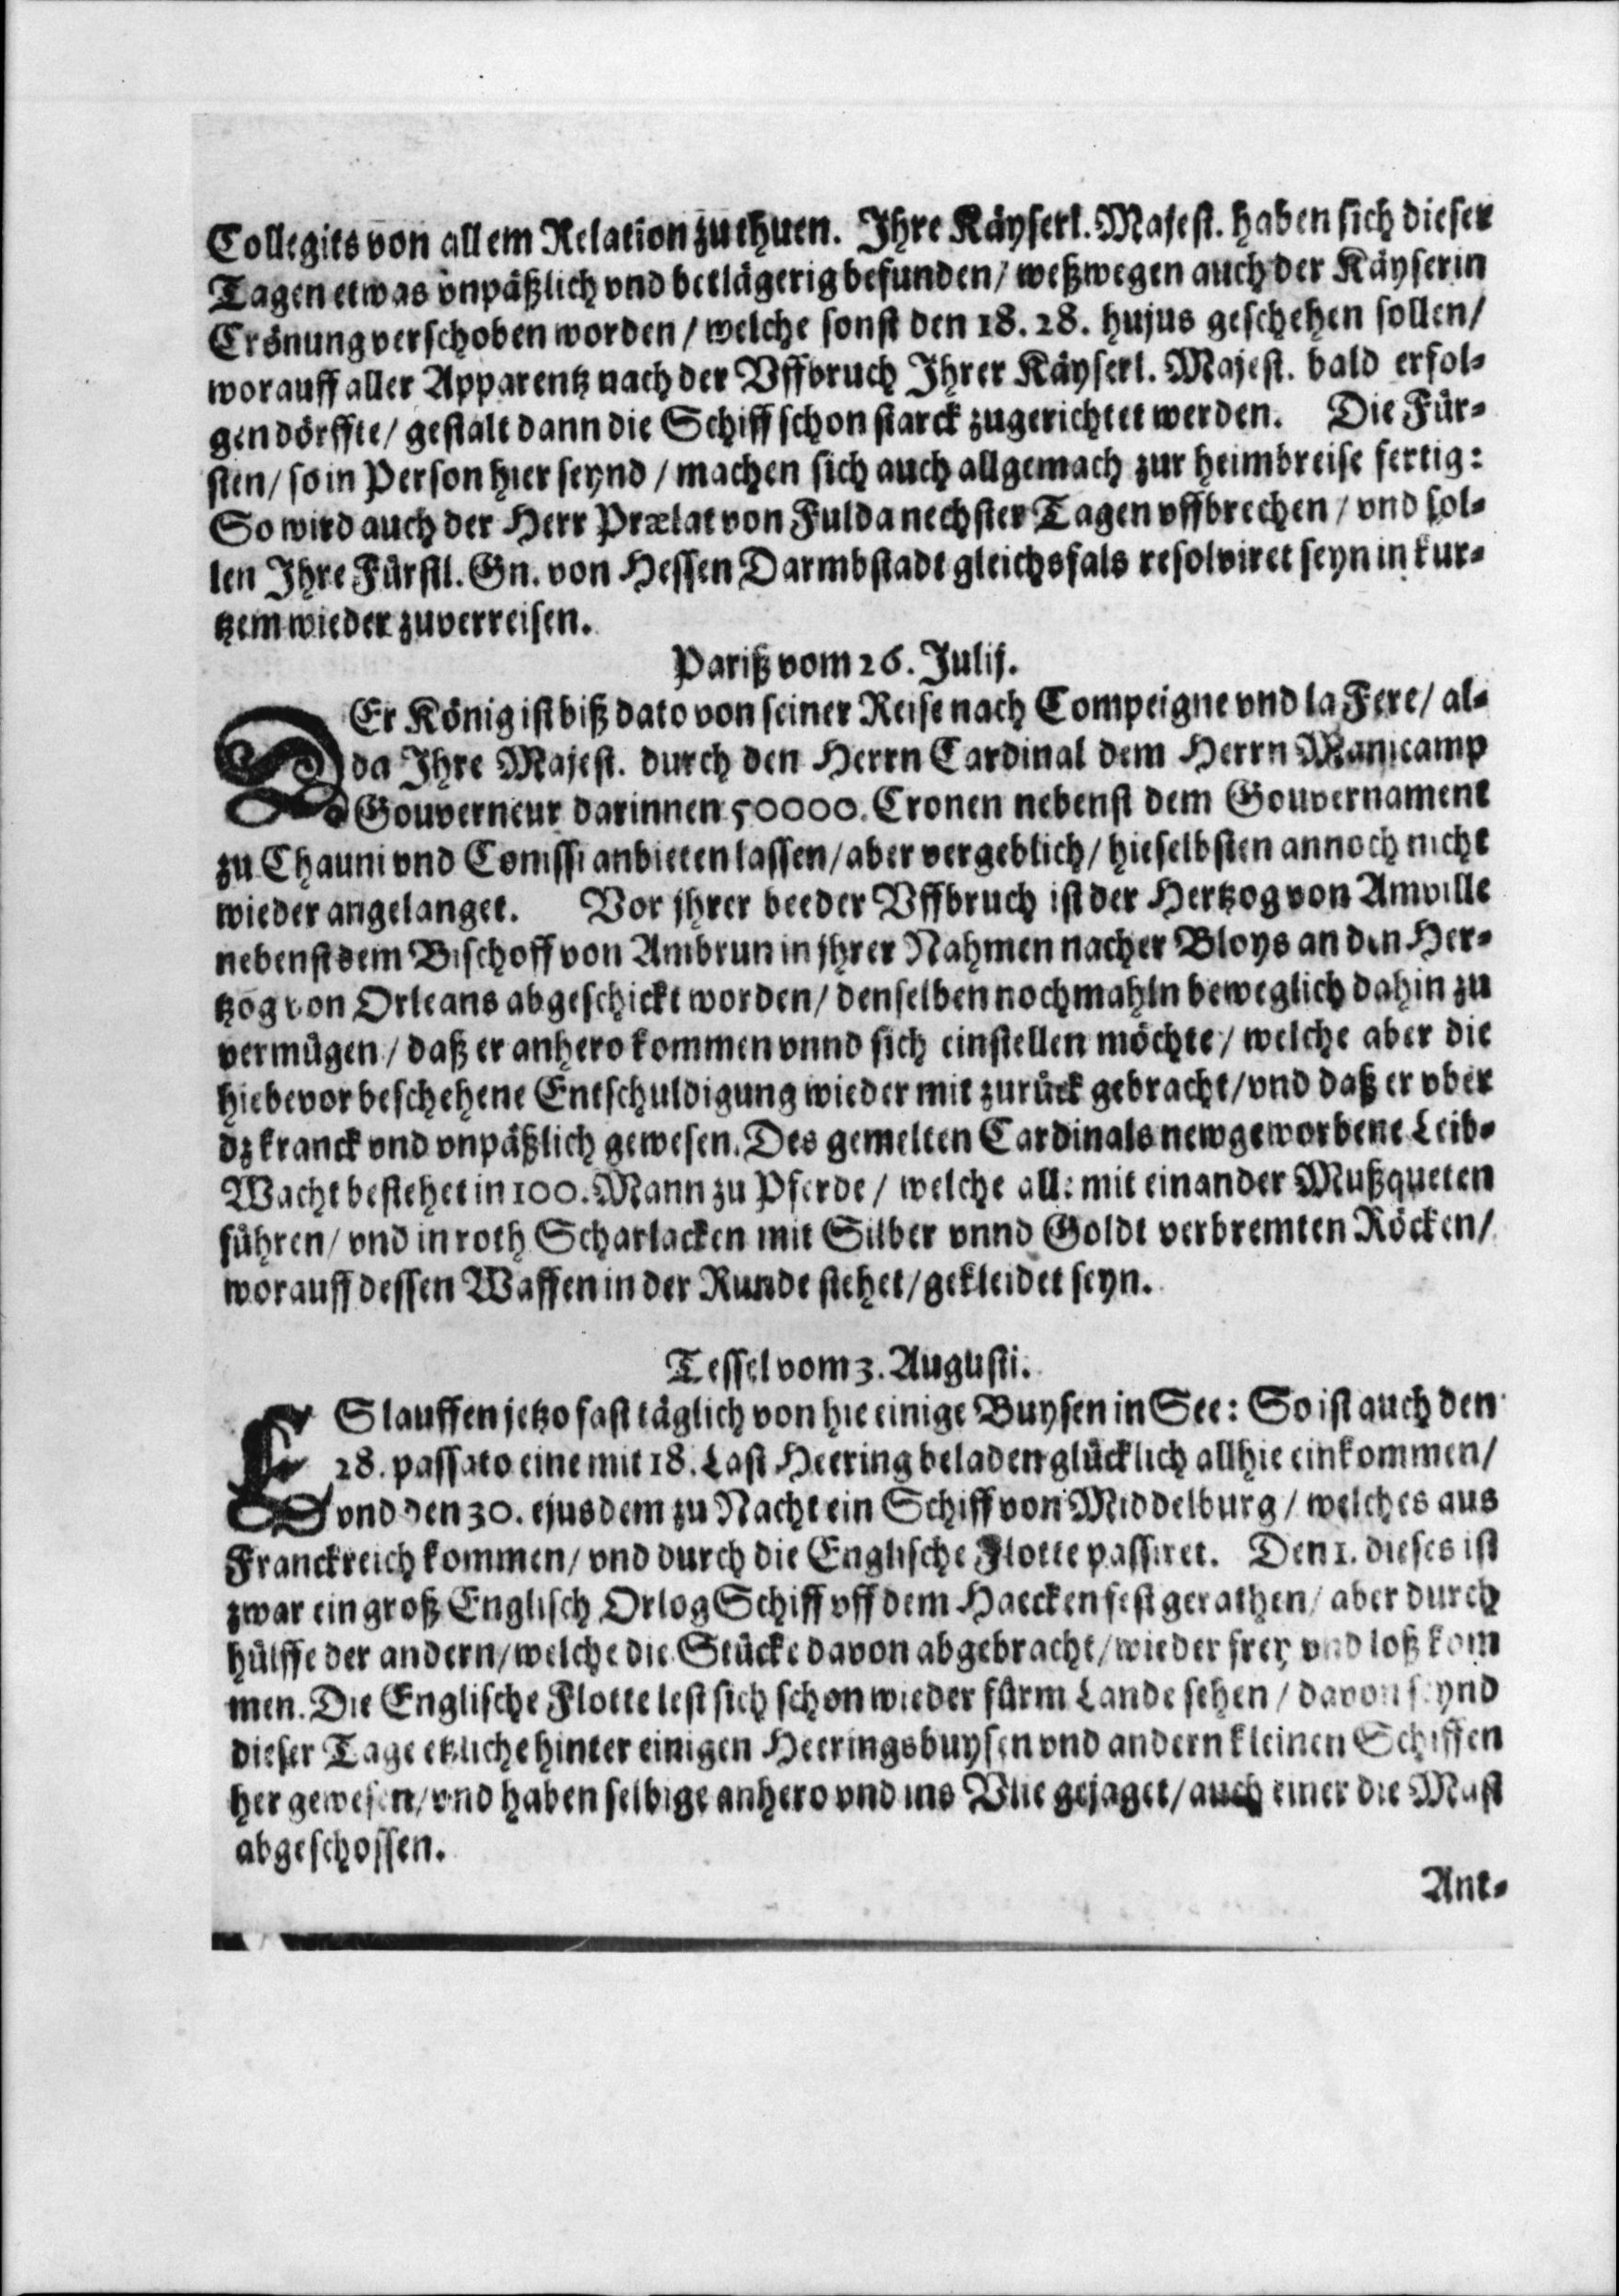 Collegiis von allem Relation zu thuen. Ihre Käyserl. Majest. haben sich dieser
Tagen etwas vnpäßlich vnd betlägerig befunden/ weßwegen auch der Käyserin
Crönung verschoben worden/ welche sonst den 18. 28. hujus geschehen sollen/
worauff aller Apparentz nach der Vffbruch Ihrer Käyserl. Majest. bald erfol-
gen dörffte/ gestalt dann die Schiff schon starck zugerichtet werden. Die Für-
sten/ so in Person hier seynd/ machen sich auch allgemach zur heimbreise fertig:
So wird auch der Herr Prælat von Fulda nechster Tagen vffbrechen/ vnd sol-
len Ihre Fürstl. Gn. von Hessen Darmbstadt gleichsfals resolviret seyn in kur-
tzem wieder zuverreisen.
Pariß vom 26. Julij.
DEr König ist biß dato von seiner Reise nach Compeigne vnd la Fere/ al-
da Ihre Majest. durch den Herrn Cardinal dem Herrn Manicamp
Gouverneur darinnen 50000. Cronen nebenst dem Gouvernament
zu Chauni vnd Conissi anbieten lassen/ aber vergeblich/ hieselbsten annoch nicht
wieder angelanget. Vor jhrer beeder Vffbruch ist der Hertzog von Amville
nebenst dem Bischoff von Ambrun in jhrer Nahmen nacher Bloys an den Her-
tzog von Orleans abgeschickt worden/ denselben nochmahln beweglich dahin zu
vermügen/ daß er anhero kommen vnnd sich einstellen möchte/ welche aber die
hiebevor beschehene Entschuldigung wieder mit zurück gebracht/ vnd daß er vber
dz kranck vnd vnpäßlich gewesen. Des gemelten Cardinals newgeworbene Leib-
Wacht bestehet in 100. Mann zu Pferde/ welche alle mit einander Mußqueten
führen/ vnd in roth Scharlacken mit Silber vnnd Goldt verbremten Röcken/
worauff dessen Waffen in der Runde stehet/ gekleidet seyn.
Tessel vom 3. Augusti.
ES lauffen jetzo fast täglich von hie einige Buysen in See: So ist auch den
28. passato eine mit 18. Last Heering beladen glücklich allhie einkommen/
vnd den 30. ejusdem zu Nacht ein Schiff von Middelburg/ welches aus
Franckreich kommen/ vnd durch die Englische Flotte passiret. Den 1. dieses ist
zwar ein groß Englisch Orlog Schiff vff dem Haecken fest gerathen/ aber durch
hülffe der andern/ welche die Stücke davon abgebracht/ wieder frey vnd loß kom
men. Die Englische Flotte lest sich schon wieder fürm Lande sehen/ davon seynd
dieser Tage etzliche hinter einigen Heeringsbuysen vnd andern kleinen Schiffen
her gewesen/ vnd haben selbige anhero vnd ins Vlie gejaget/ auch einer die Mast
abgeschossen.
Ant-